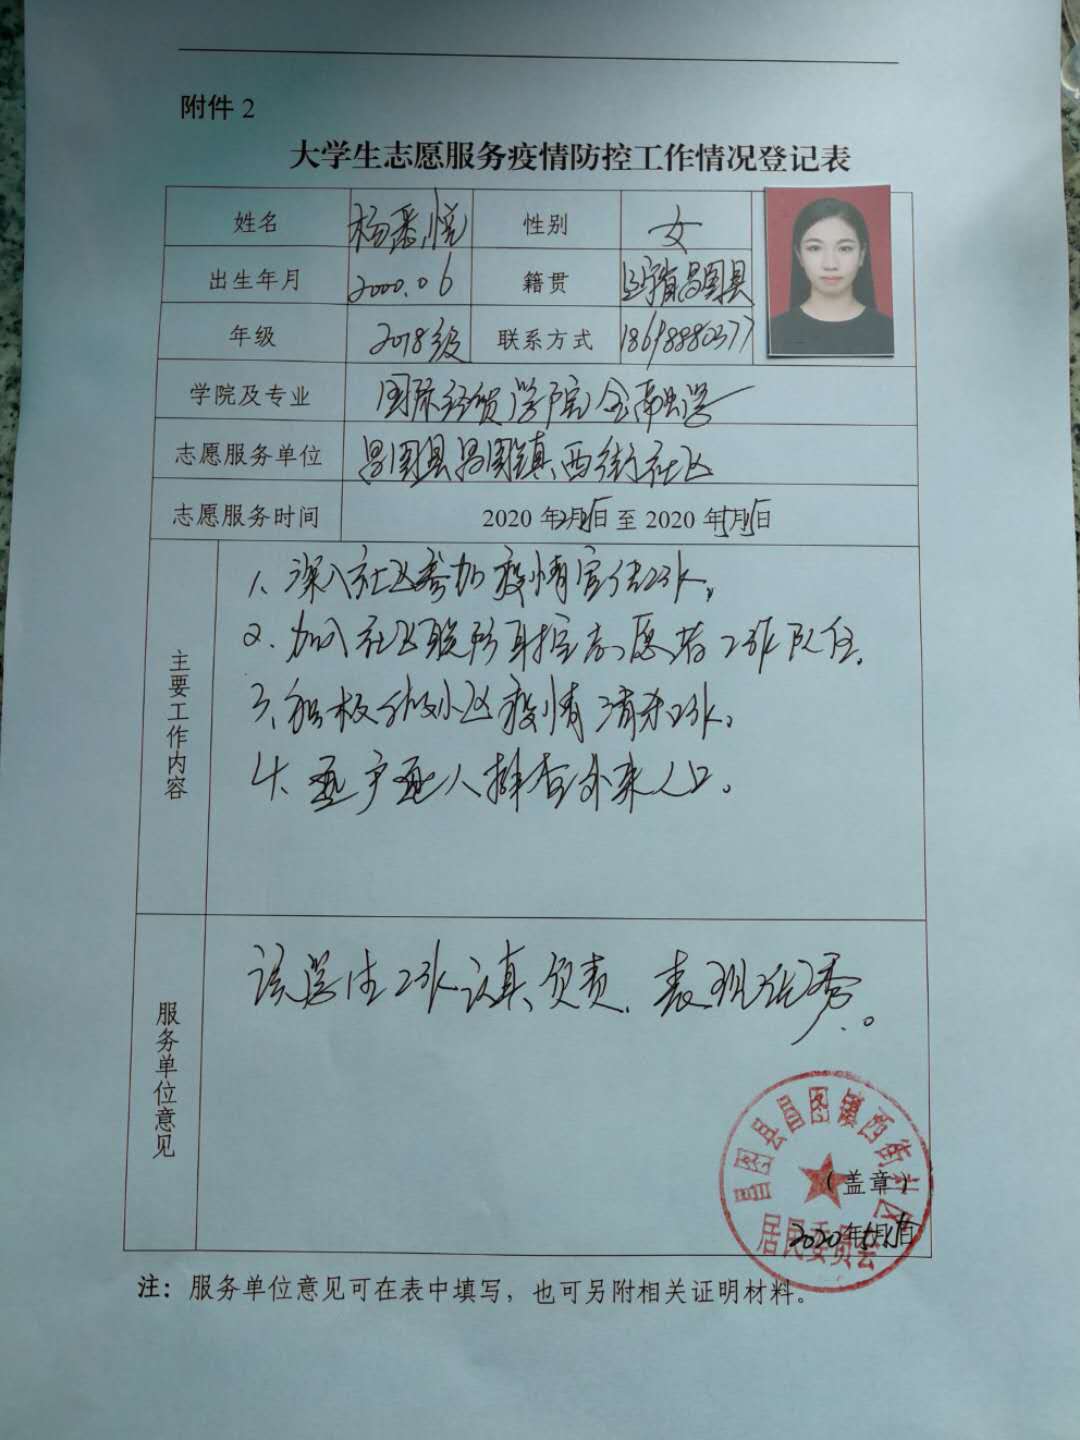 附件 2
大学生志愿服务疫情防控工作情况登记表
姓名 杨番悦 性别 女
出生年月 2000.06 籍贯 辽宁省昌图县
年级 2018级 联系方式 18698880377
学院及专业 国际经贸学院金融学
志愿服务单位 昌图县昌图镇西街社区
志愿服务时间 2020 年2月 日 至 2020 年5月 日
主要工作内容
1、深入社区参加疫情宣传工作。
2、加入社区联防 控志愿者工作队伍。
3、积极做小区疫情消杀工作。
4、逐户逐人排查外来人口。
服务单位意见
该学生工作认真负责,表现优秀。
昌图县昌图镇西街社区
居民委员会
(盖章)
2020年5月 日
注：服务单位意见可在表中填写，也可另附相关证明材料。